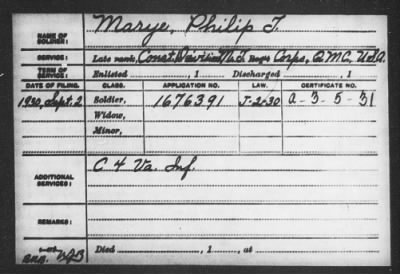 NAME OF SOLDIER: Marye, Philip T.
SERVICE: Late rank, Const. Division M.T. Reg't Corps, Q.M.C., U.S.A.
TERM OF SERVICE: Enlisted , 1 Discharged , 1
DATE OF FILING. CLASS. APPLICATION NO. LAW. CERTIFICATE NO.
1930, Sept. 2 Soldier, 1676391 J-2-30 a-3-5-31
Widow,
Minor,
ADDITIONAL SERVICES: C 4 Va. Inf.
REMARKS:
Died , 1 , at